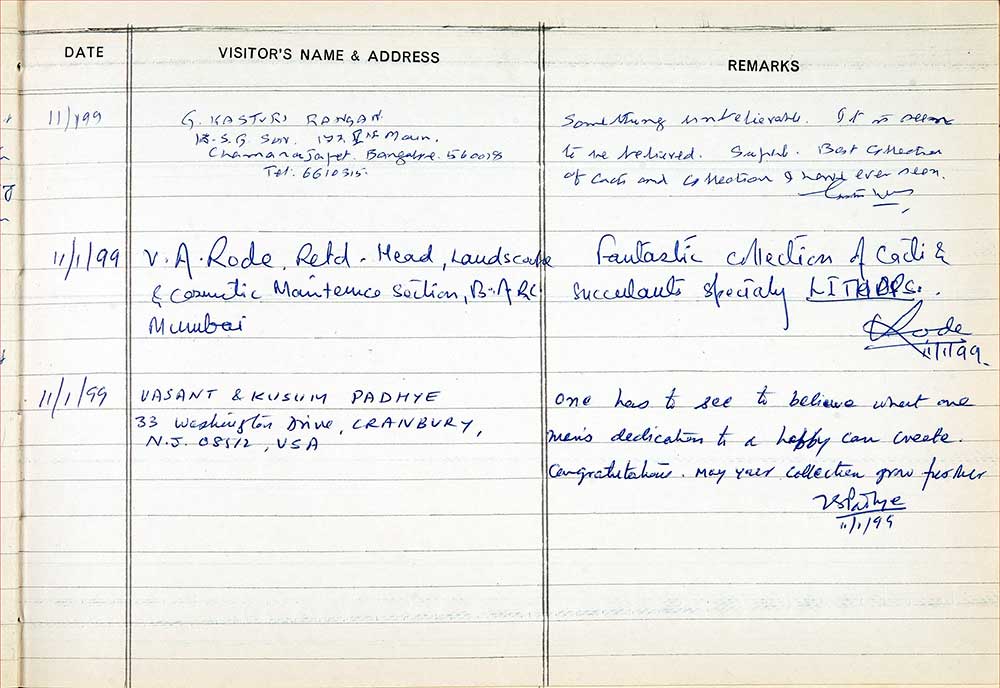 DATE
VISITOR'S NAME & ADDRESS
REMARKS
11/1/99
G. KASTURI RANGAN
Main.
Chamarajapet. Bangalore. 560018
Tel: 6610315.
Something unbelievable. It is seen
to be believed. Superb. Best Collection
of Cacti and Collection I have ever seen.
11/1/99
V. A. Rode. Retd - Head, Landscape
& Cosmetic Maintence Section, B.A.R.C.
Mumbai
Fantastic collection of Cacti &
succulants specialy LITHOPS.
Rode
11/1/99.
11/1/99
VASANT & KUSUM PADHYE
33 Washington Drive, CRANBURY,
N.J. 08512, USA
One has to see to believe what one
man's dedication to a hobby can create.
Congratulations. May your collection grow further
VSPadhye
11/1/99